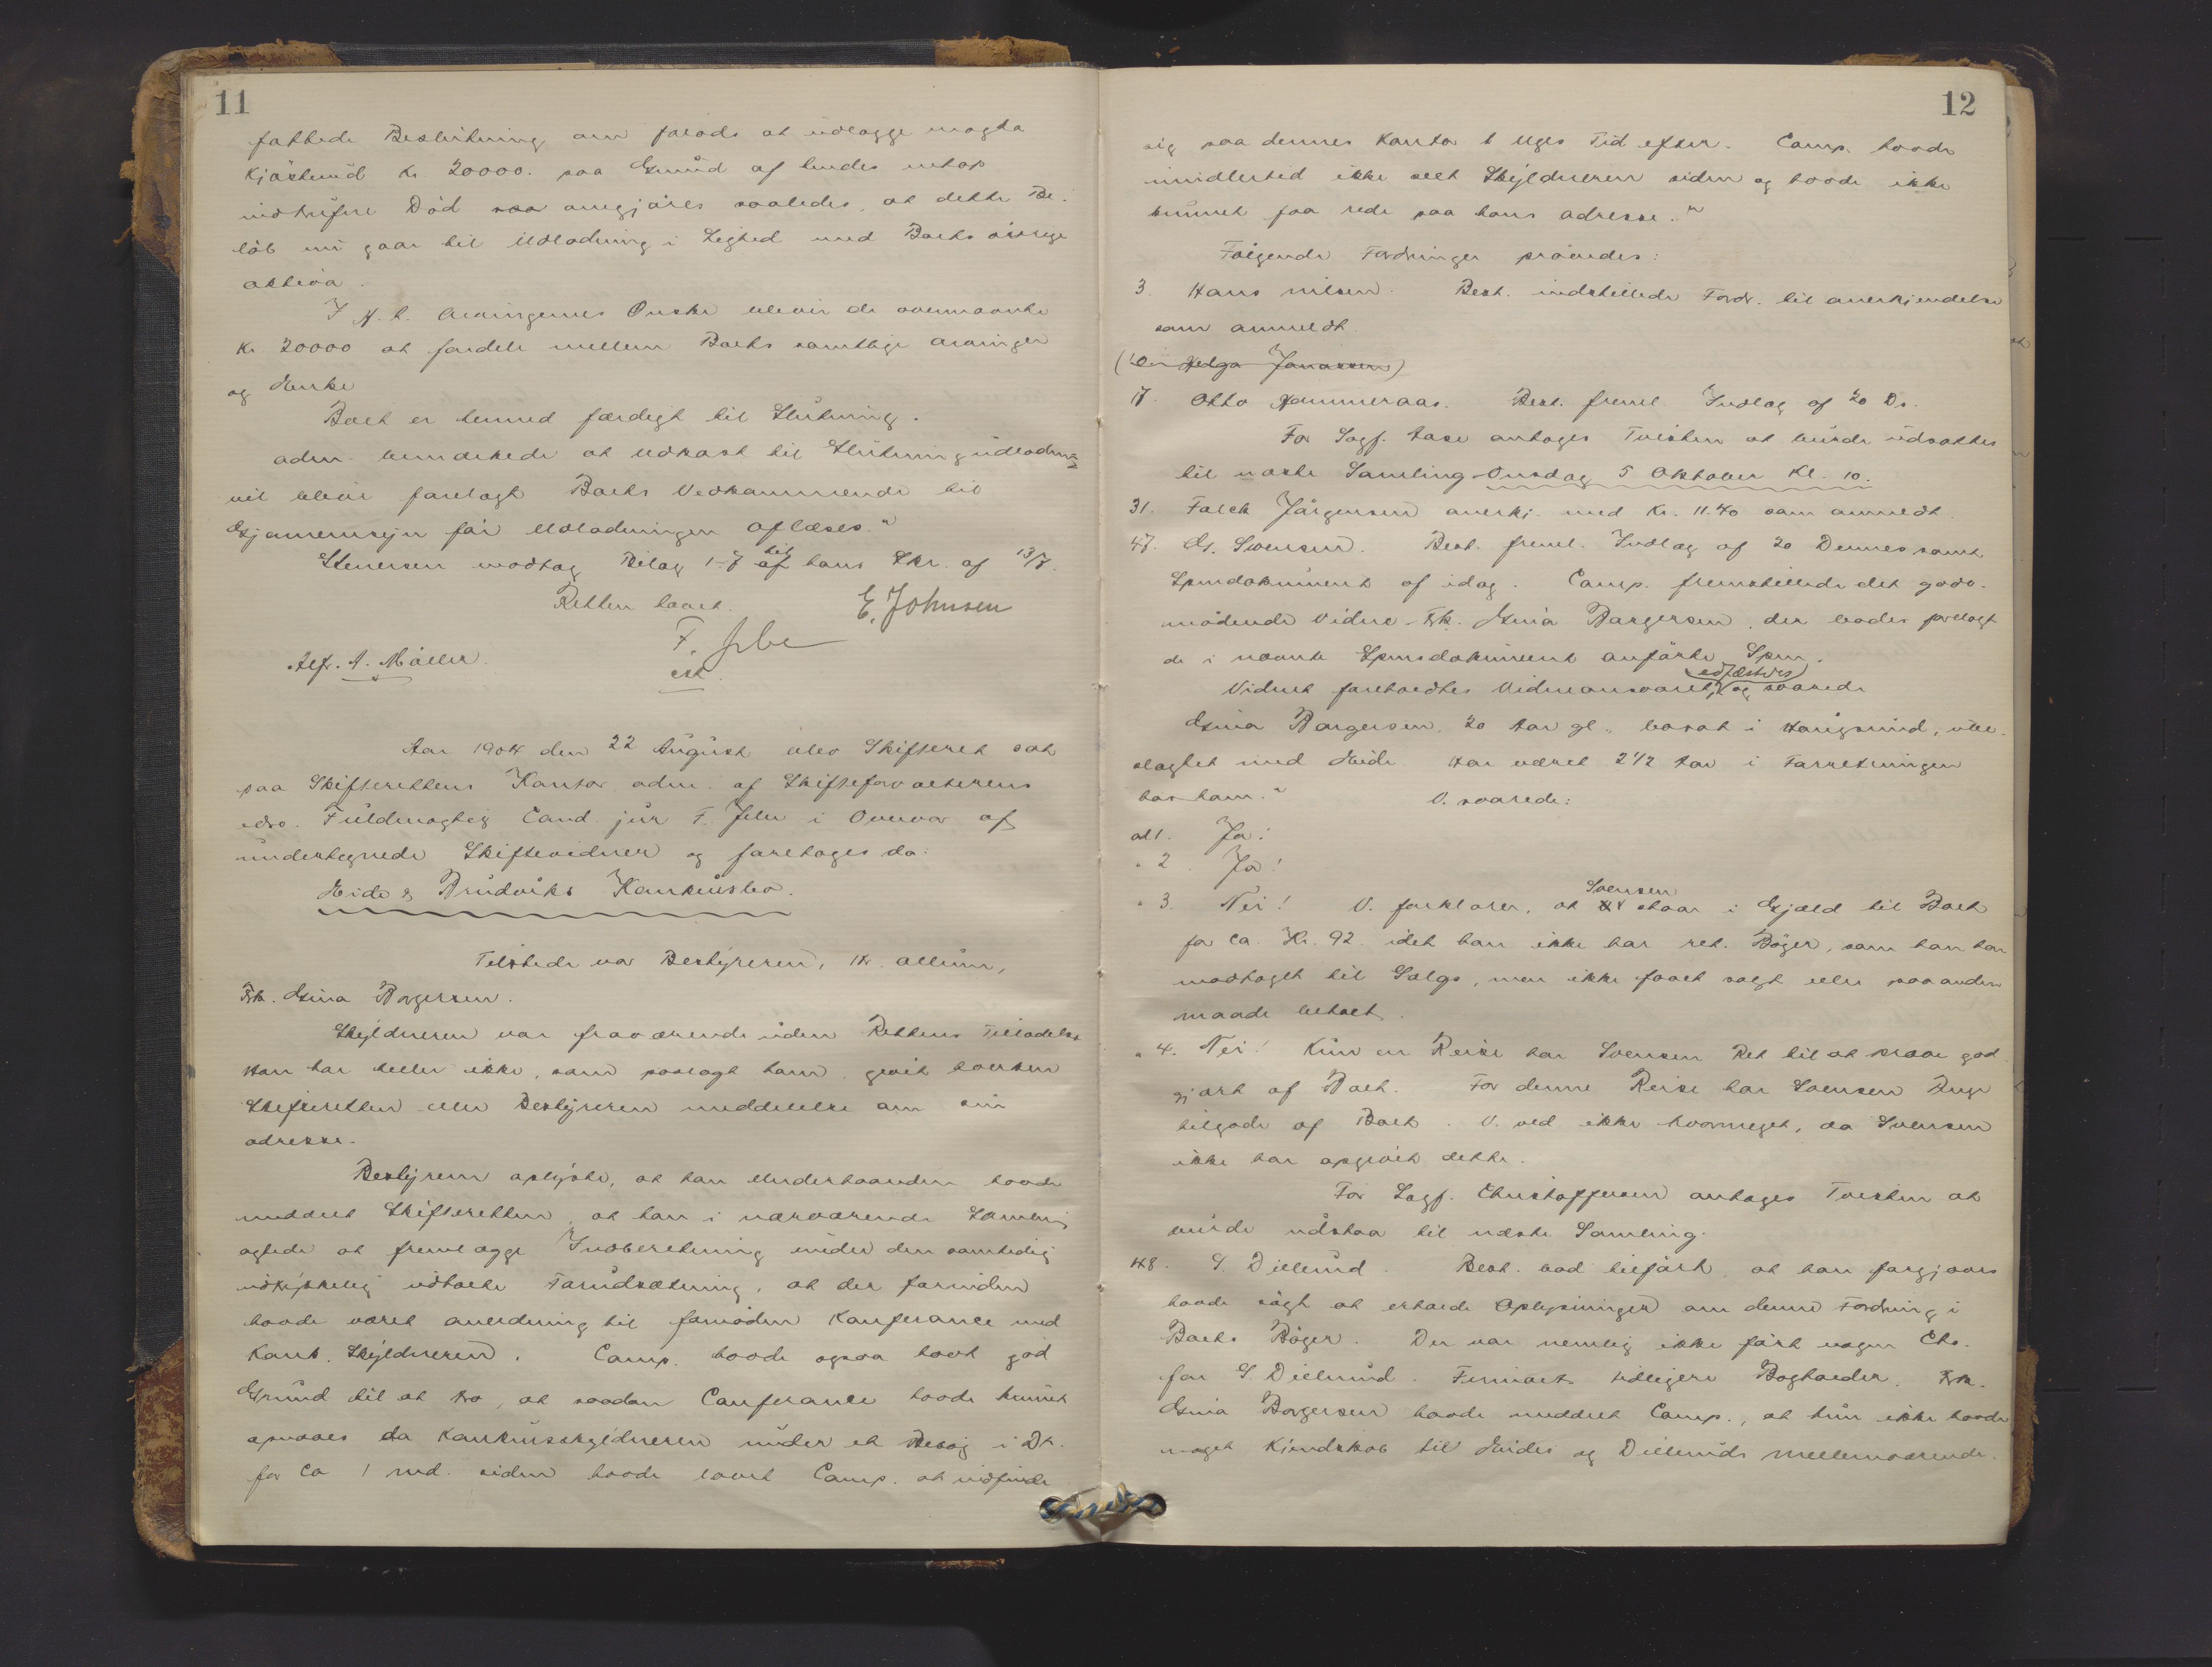 11
fattede Beslutning om forlods at udlægge
Kjøsterud Kr. 20000. paa Grund af hendes netop
indtrufne Død omgjøres saaledes, at dette Be-
løb nu gaar til Udlodning i Lighed med Boets øvrige
aktiva.
I H. t. Arvingernes Ønske bliver de ovennævnte
Kr 20000 at fordele mellem Boets samtlige arvinger
og Enke
Boet er hermed færdigt til Slutning.
adm. bemærkede at Udkast til Slutningsudlodning
vil blive forelagt Boets Vedkommende til
Gjennemsyn før Udlodningen aflæses."
Stenersen modtog Bilag 1-7 til hans Skr. af 13/7.
Retten hævet. E. Johnsen
F. Jebe
cst
Alf. A. Møller
Aar 1904 den 22 August blev Skifteret sat
paa Skifterettens Kontor adm. af Skifteforvalterens
edsv. Fuldmægtig Cand. jur F. Jebe i Overvær af
undertegnede Skiftevidner og foretoges da:
Eide & Brudviks Konkursbo.
Tilstede var Bestyreren, Hr. Allum,
Frk. Gina Borgersen.
Skyldneren var fraværende uden Rettens Tilladelse
Han har heller ikke, som paalagt ham, givet hverken
Skifteretten eller Bestyreren meddelelse om sin
adresse.
Bestyreren oplyste, at han Underhaanden havde
meddelt Skifteretten, at han i nærværende Samling
agtede at fremlægge Indberetning under den samtidig
udtrykkelig udtalte Forudsætning, at der forinden
havde været anledning til fornøden Konferance med
Konk. Skyldneren. Comp. havde ogsaa havt god
Grund til at tro, at saadan Conferance havde kunnet
opnaaes da Konkursskyldneren under et Besøg i Dr.
for Ca 1 md. siden havde lovet Comp. at indfinde
12
sig paa dennes Kontor 6 Uges Tid efter. Comp. havde
imidlertid ikke seet Skyldneren siden og havde ikke
kunnet faa rede paa hans adresse."
Følgende Fordringer prøvedes:
3. Hans Nilsen. Best. indstillede Fordr. til anerkjendelse
som anmeldt.
(Helga Jonassen)
17. Otto Hammeraas. Best. freml. Indlæg af 20 Ds.
For Sagf. Aase antoges Tvisten at burde udsættes
til næste Samling Onsdag 5 Oktober Kl. 10.
31. Falck Jørgensen anerkj. med Kr. 11.40 som anmeldt.
47. G. Svensen. Best. freml. Indlæg af 20 Dennes samt
Spmdokument af idag. Comp. fremstillede det godv.
mødende Vidne Frk. Gina Borgersen, der bades forelagt
de i nævnte Spmsdokument anførte Spm.
Vidnet foreholdtes Vidneansvaret, edfæstedes og svarede
Gina Borgersen, 20 Aar gl., bosat i Haugsund, ube-
slægtet med Eide. Har været 2 1/2 Aar i Forretningen
hos ham." V. svarede:
ad 1. Ja!
" 2 Ja!
" 3. Nei! V. forklarer, at Svensen staar i Gjæld til Boet
for Ca. Kr. 92. idet han ikke har ret. Bøger, som han har
modtaget til Salgs, men ikke faaet solgt eller paa anden
maade betalt.
" 4. Nei! Kun en Reise har Svensen Ret til at kræve god
gjort af Boet. For denne Reise har Svensen Penge
tilgode af Boet. V. ved ikke hvormeget, da Svensen
ikke har opgivet dette.
For Sagf. Christoffersen antoges Tvisten at
burde udstaa til næste Samling.
48. S. Diesrud. Best. bad tilført, at han forgjæves
havde søgt at erholde Oplysninger om denne Fordring i
Boets Bøger. Der var nemlig ikke ført nogen Cto.
for S. Diesrud. Firmaets tidligere Bogholder, Frk.
Gina Borgersen havde meddelt Comp., at hun ikke havde
noget Kjendskab til Eides og Diesruds mellemværende.